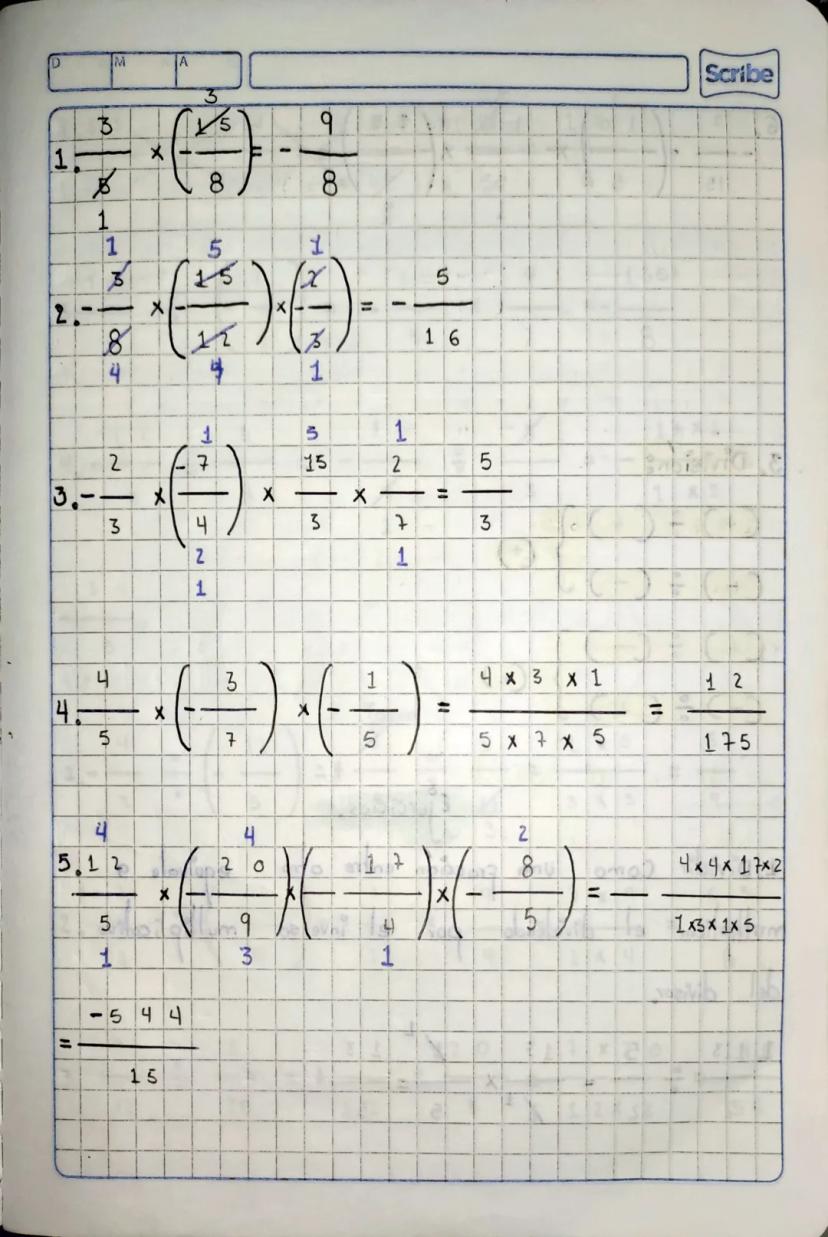 D M A Scribe
3
1. 3/5 × (-15/8) = - 9/8
1
1 5 1
2. - 3/8 × (-15/12) × (-2/3) = - 5/16
4 4 1
1 5 1
3. - 2/3 × (-7/4) × 15/3 × 2/7 = 5/3
2 1
1
4. 4/5 × (-3/7) × (-1/5) = 4 × 3 × 1 / 5 × 7 × 5 = 12/175
4 4 2
5. 12/5 × (-20/9) × (-17/4) × (-8/5) = - 4×4×17×2 / 1×3×1×5
1 3 1
= -544/15